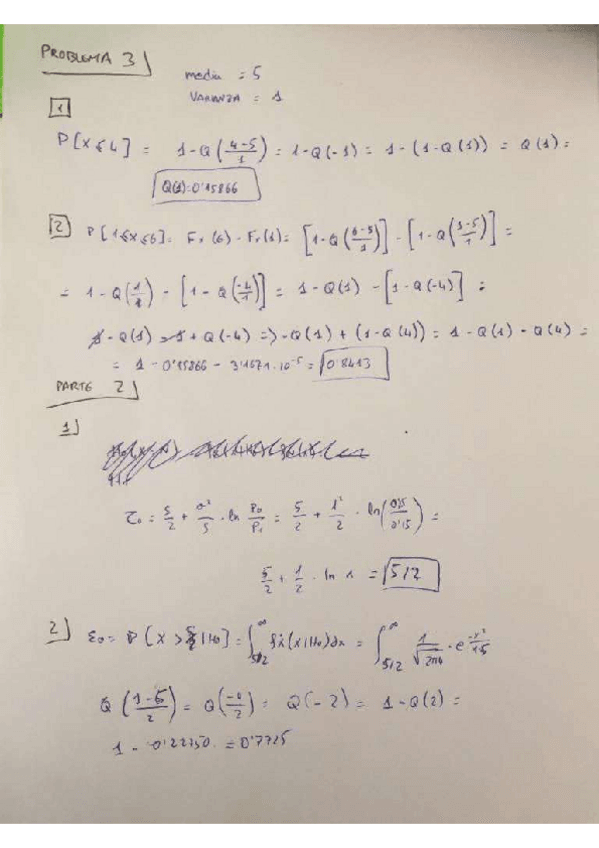 PROBLEMA 3
media = 5
VARIANZA = 1
1
P[X≤4] = 1-Q(4-5/1) = 1-Q(-1) = 1-(1-Q(1)) = Q(1) =
Q(1)=0'15866
2
P[1≤X≤6] = Fx(6) - Fx(1) = [1-Q(6-5/1)] - [1-Q(1-5/1)] =
= 1-Q(1/1) - [1-Q(-4/1)] = 1-Q(1) - [1-Q(-4)] =
1-Q(1) -1 + Q(-4) => -Q(1) + (1-Q(4)) = 1-Q(1)-Q(4) =
= 1 - 0'15866 - 3'1671·10^-5 = 0'8413
PARTE 2
1)
τ0 = 5/2 + σ²/5 · ln P0/P1 = 5/2 + 1²/2 · ln( ) =
5/2 + 1/2 · ln 1 = 5/2
2) ε0 = P[X> |H0] = ∫5/2^∞ fx(x|H0)dx = ∫5/2^∞ 1/√2π · e
Q( /2) = Q( /2) = Q(-2) = 1-Q(2) =
1 - 0'22750 = 0'7725